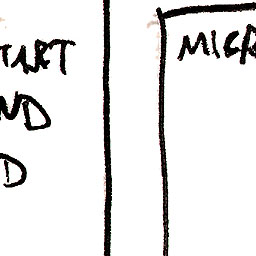 TART
ND
D
MICR